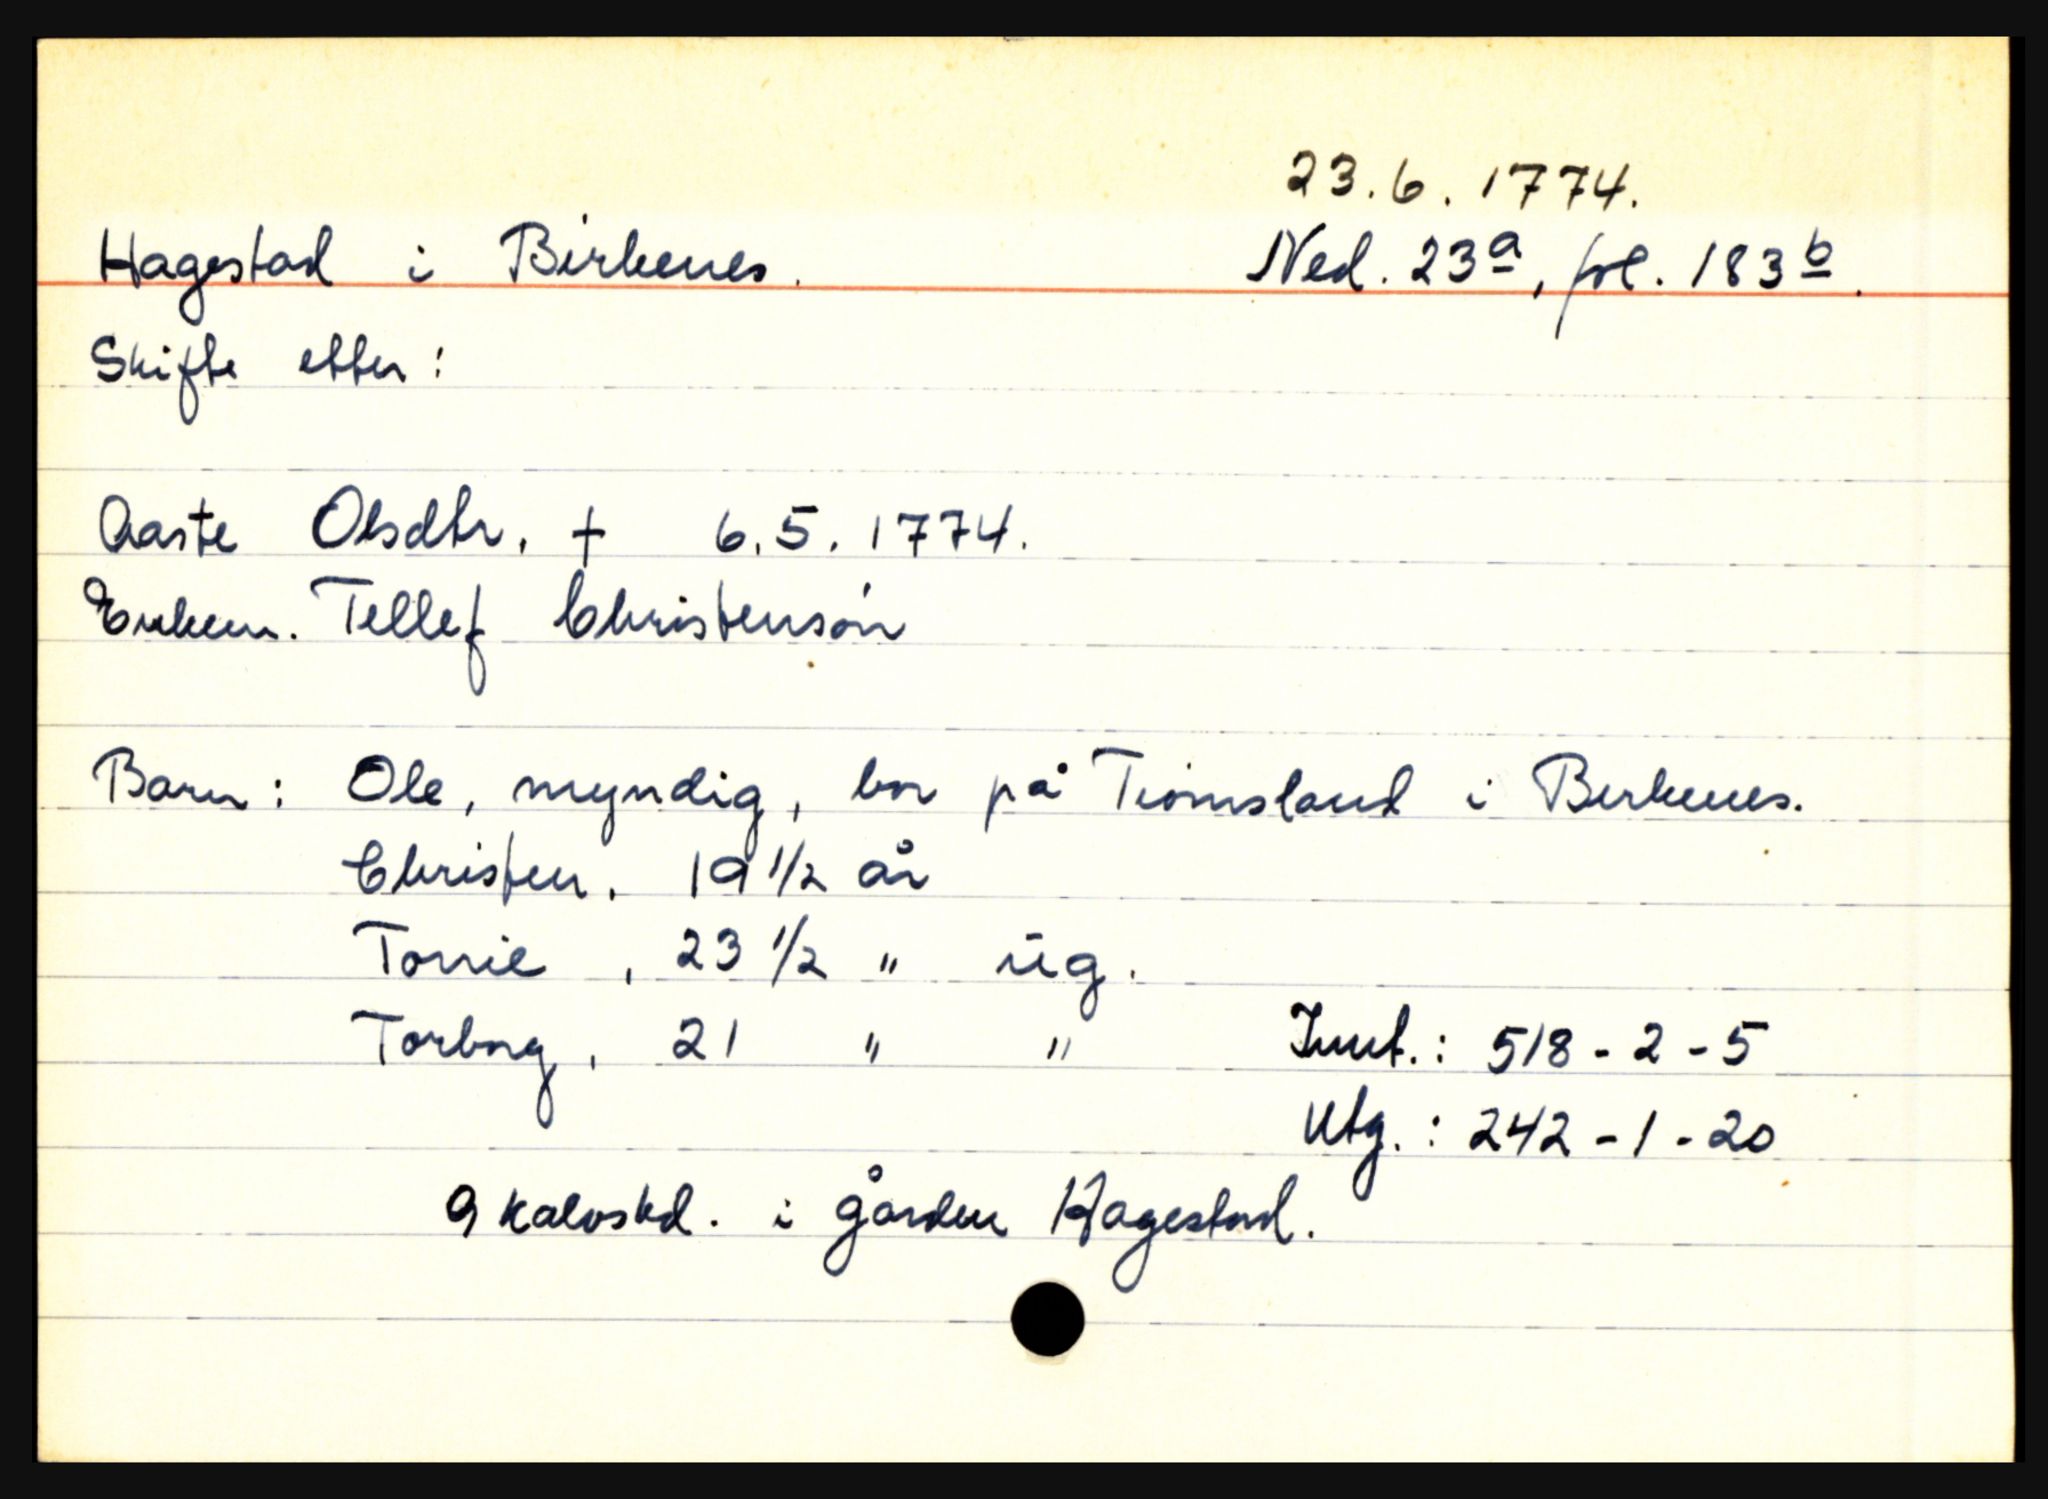 23.6.1774.
Hagestad i Birkenes. Ned. 23a, fol. 183b.
Skifte etter:
Aaste Olsdtr. + 6.5.1774.
Enkem. Tellef Christensøn
Barn: Ole, myndig, bor på Tiømsland i Birkenes.
Christen, 19 1/2 år
Torrie, 23 1/2 " ug.
Torborg, 21 " "
Innt.: 518 - 2 - 5
Utg.: 242 - 1 - 20
9 kalvskd. i gården Hagestad.